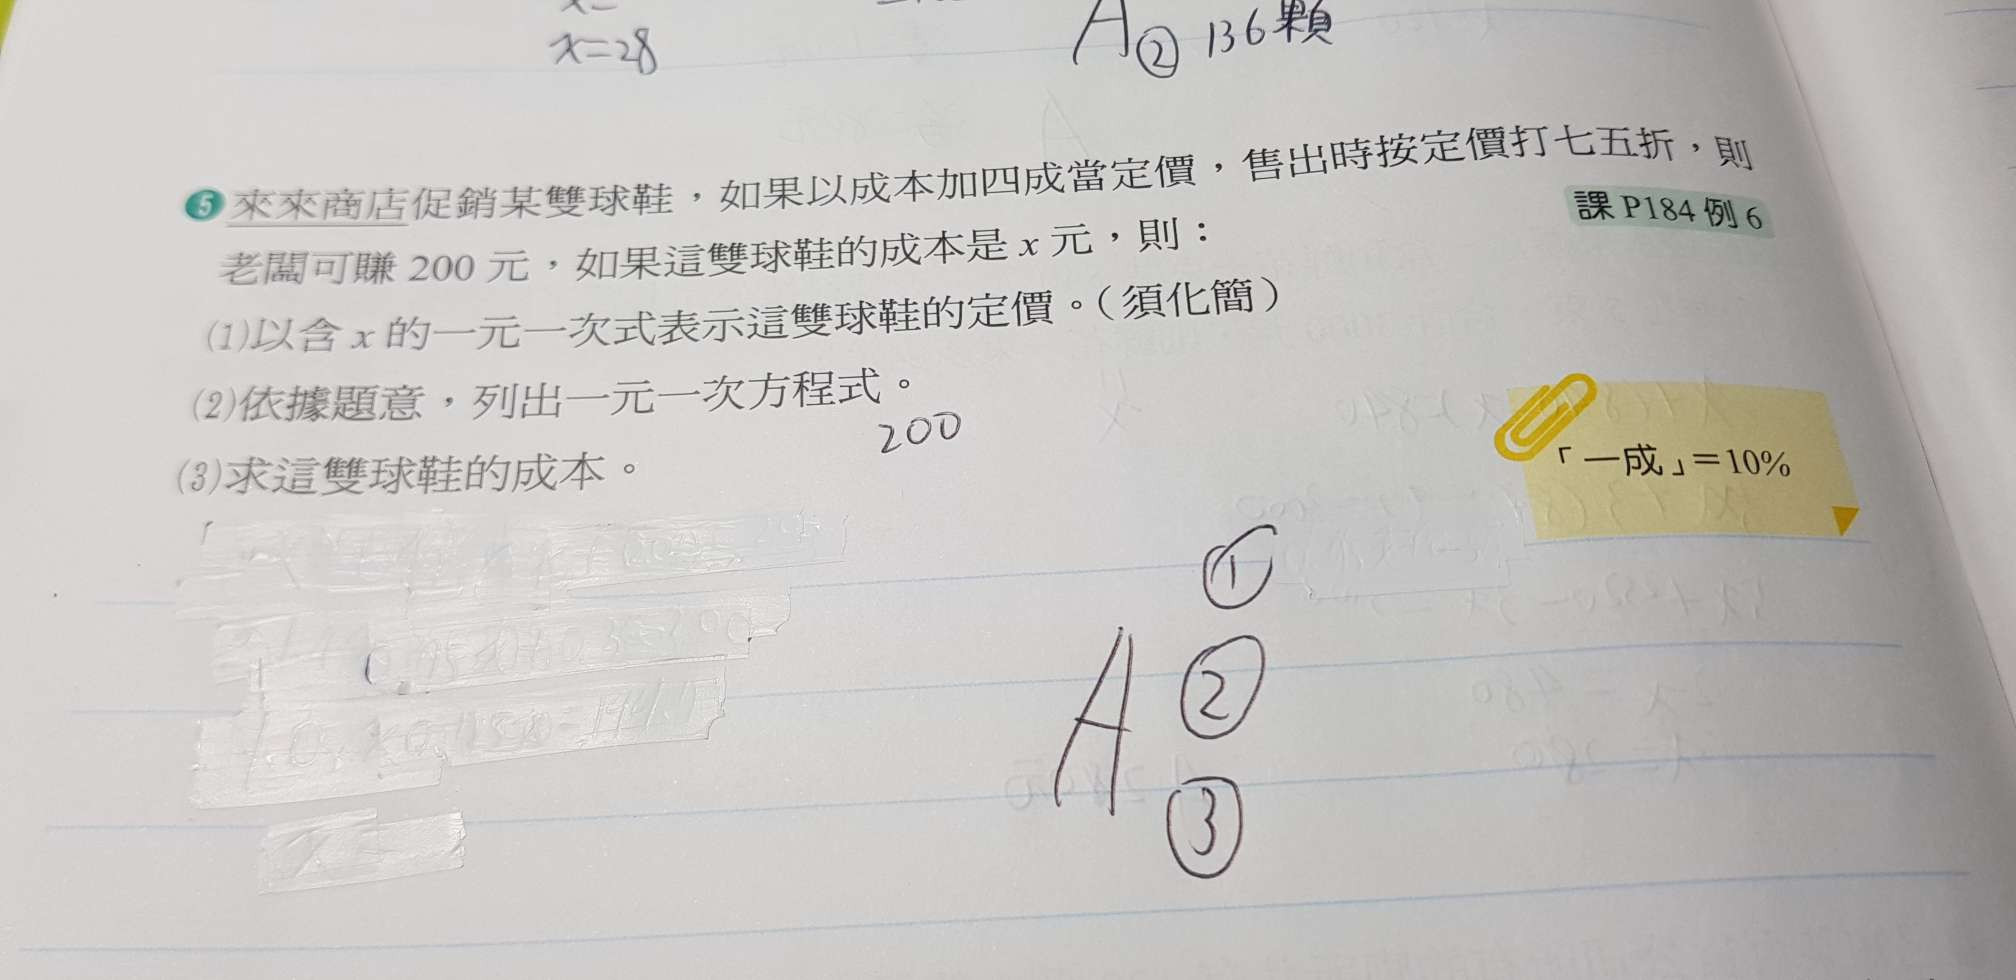 x=28
A ② 136顆
5 來來商店促銷某雙球鞋，如果以成本加四成當定價，售出時按定價打七五折，則
課 P184 例 6
老闆可賺 200 元，如果這雙球鞋的成本是 x 元，則：
(1)以含 x 的一元一次式表示這雙球鞋的定價。（須化簡）
(2)依據題意，列出一元一次方程式。
200
(3)求這雙球鞋的成本。
「一成」＝10%
①
A ②
③